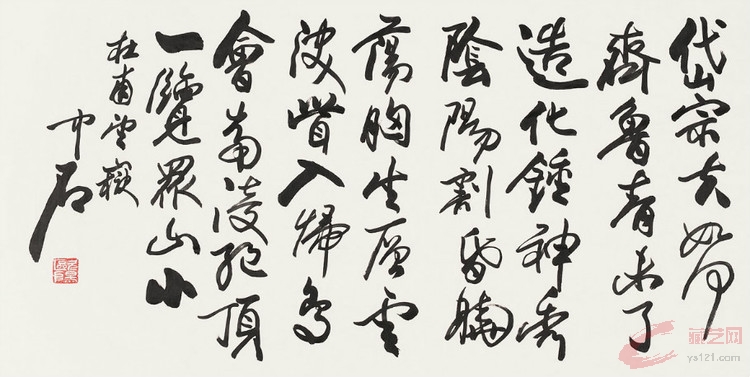 岱宗夫如何
齊魯青未了
造化鍾神秀
陰陽割昏曉
蕩胸生層雲
決眥入歸鳥
會當凌絕頂
一覽眾山小
杜甫望嶽
中石
藏艺网
ys121.com